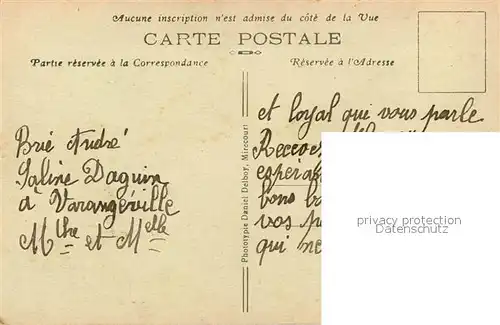 Aucune inscription n'est admise du côté de la Vue
CARTE POSTALE
Partie réservée à la Correspondance
Réservée à l'Adresse
Brié André
Saline Daguin
à Varangéville
Mthe et Melle
Phototypie Daniel Delboy, Mirecourt
et loyal qui vous parle
bons
vos
qui ne
privacy protection
Datenschutz